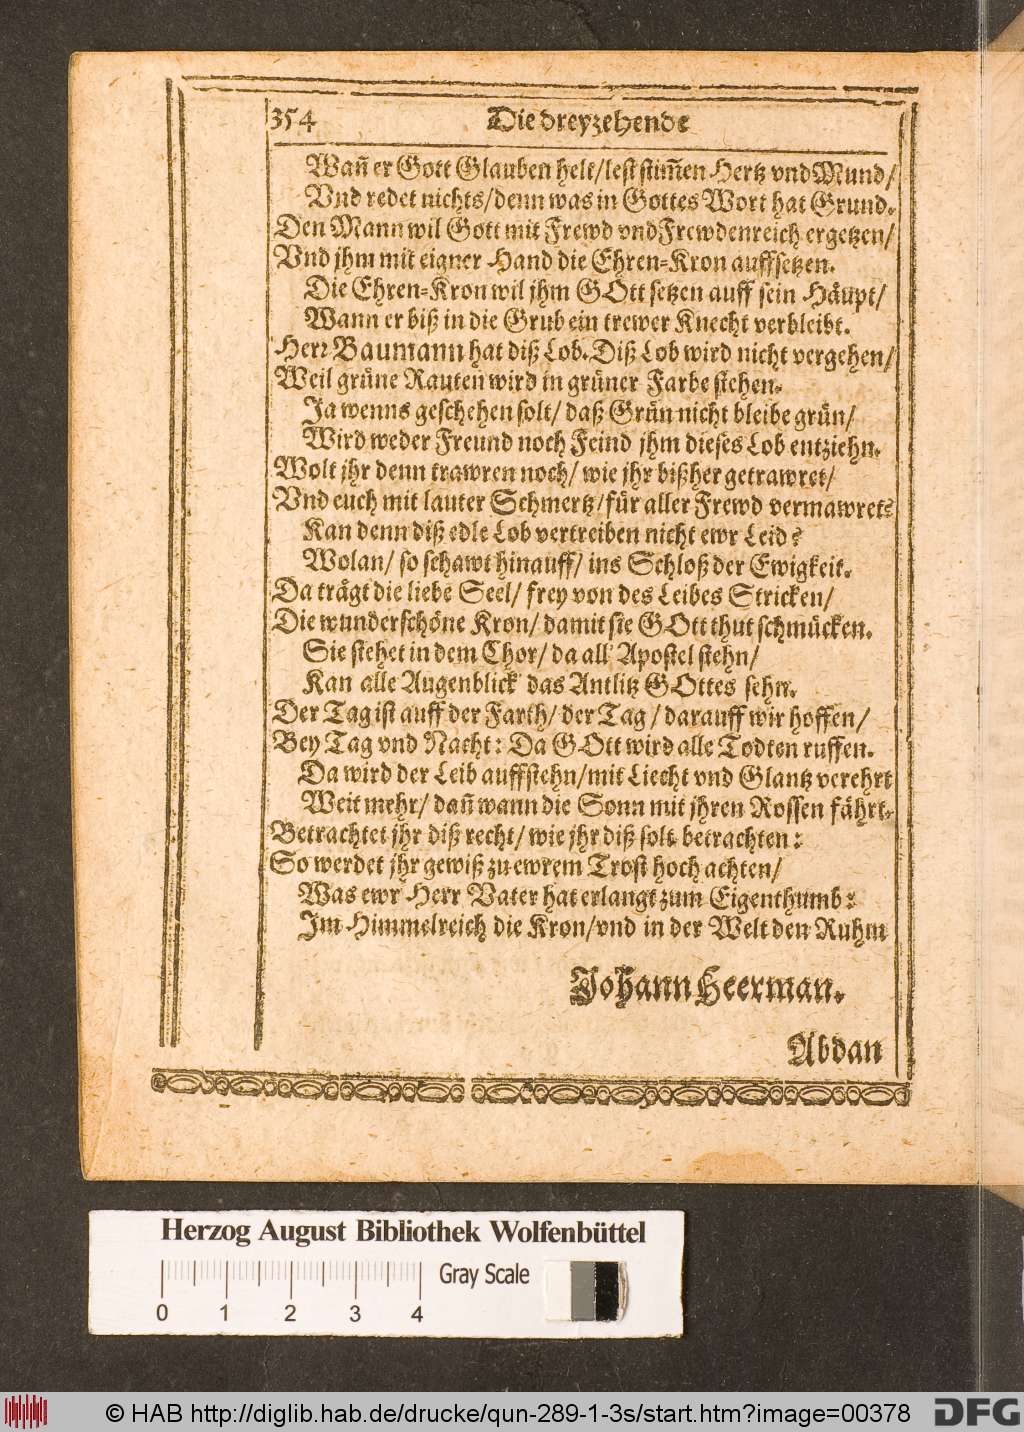 354 Die dreyzehende
Wañ er Gott Glauben helt/lest stim̃en Hertz vnd Mund/
Vnd redet nichts/denn was in Gottes Wort hat Grund.
Den Mann wil Gott mit Frewd vnd Frewdenreich ergetzen/
Vnd jhm mit eigner Hand die Ehren-Kron auffsetzen.
Die Ehren-Kron wil jhm GOtt setzen auff sein Häupt/
Wann er biß in die Grub ein trewer Knecht verbleibt.
Herr Baumann hat diß Lob. Diß Lob wird nicht vergehen/
Weil grüne Rauten wird in grüner Farbe stehen.
Ja wenns geschehen solt/ daß Grün nicht bleibe grün/
Wird weder Freund noch Feind jhm dieses Lob entziehn.
Wolt jhr denn trawren noch/ wie jhr bißher getrawret/
Vnd euch mit lauter Schmertz/für aller Frewd vermawret?
Kan denn diß edle Lob vertreiben nicht ewr Leid?
Wolan/ so schawt hinauff/ ins Schloß der Ewigkeit.
Da trägt die liebe Seel/ frey von des Leibes Stricken/
Die wunderschöne Kron/ damit sie GOtt thut schmücken.
Sie stehet in dem Chor/ da all' Apostel stehn/
Kan alle Augenblick das Antlitz GOttes sehn.
Der Tag ist auff der Farth/ der Tag/ darauff wir hoffen/
Bey Tag vnd Nacht: Da GOtt wird alle Todten ruffen.
Da wird der Leib auffstehn/mit Liecht vnd Glantz verehrt
Weit mehr/ dañ wann die Sonn mit jhren Rossen fährt.
Betrachtet jhr diß recht/ wie jhr diß solt betrachten:
So werdet jhr gewiß zu ewrem Trost hoch achten/
Was ewr Herr Vater hat erlangt zum Eigenthumb:
Im Himmelreich die Kron/vnd in der Welt den Ruhm
Johann Heerman.
Abdan
Herzog August Bibliothek Wolfenbüttel
Gray Scale
0 1 2 3 4
© HAB http://diglib.hab.de/drucke/qun-289-1-3s/start.htm?image=00378
DFG